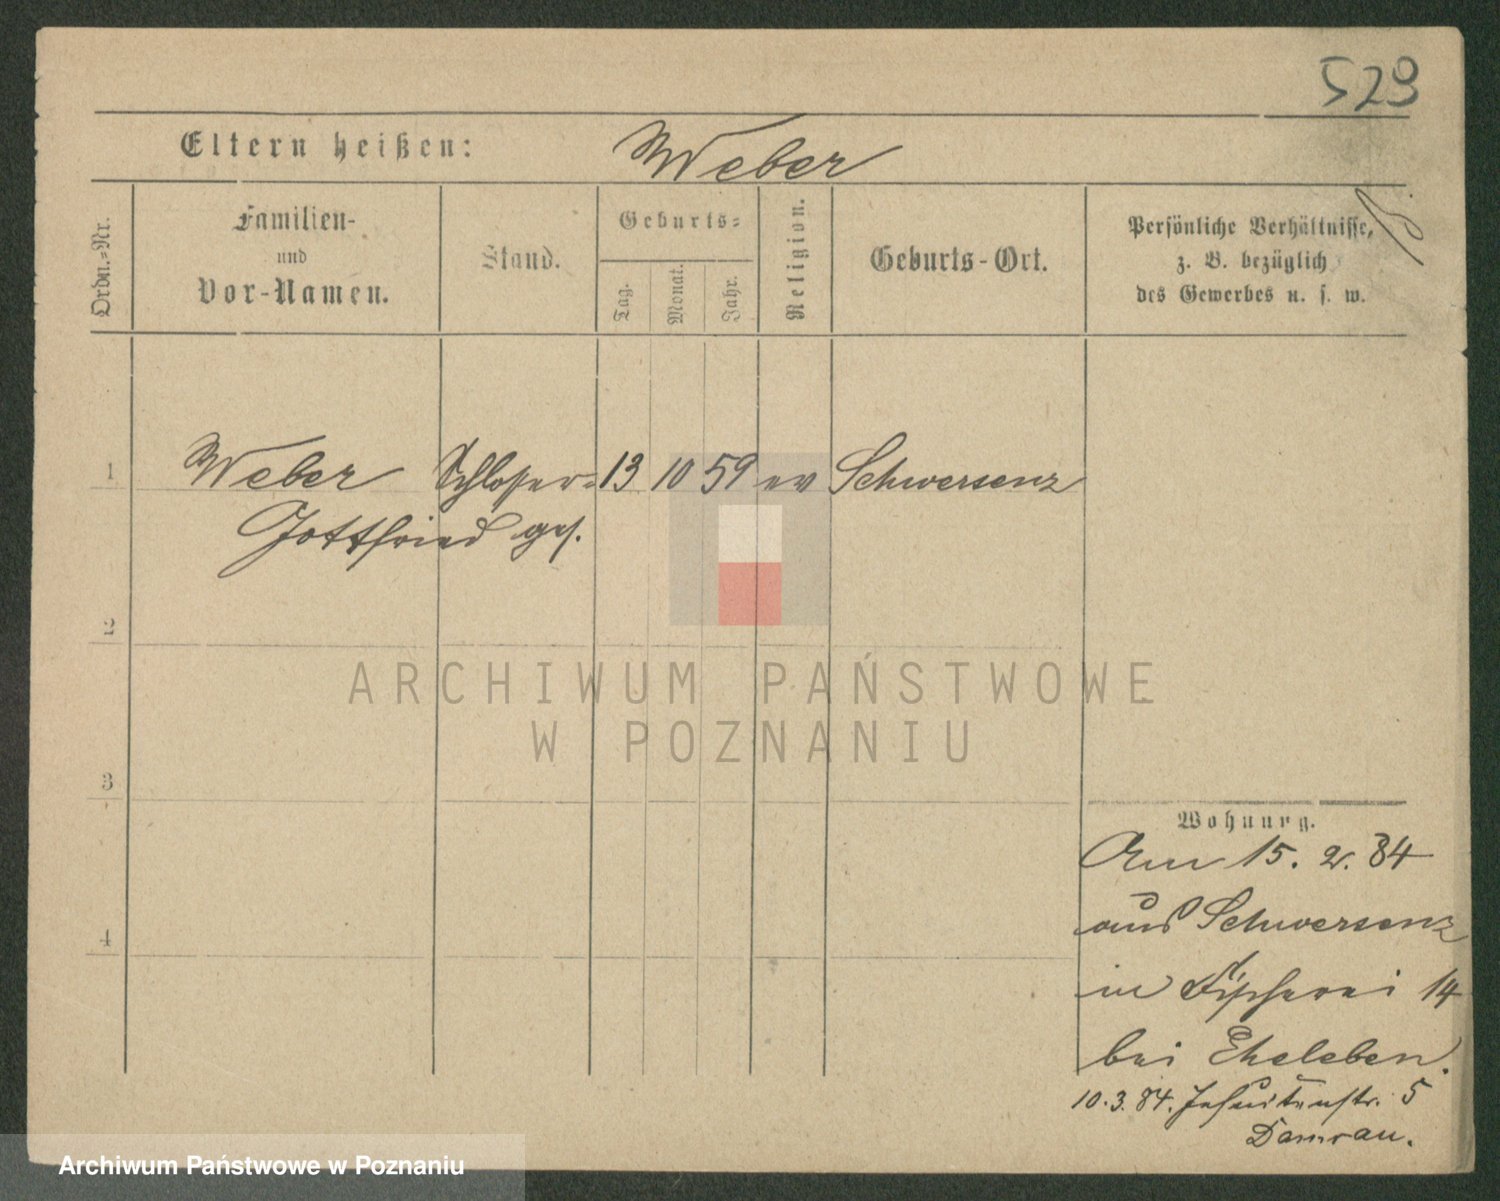 529
Eltern heißen: Weber
Ordn.-Nr.
Familien-
und
Vor-Namen.
Stand.
Geburts-
Tag.
Monat.
Jahr.
Religion.
Geburts-Ort.
Persönliche Verhältnisse,
z. B. bezüglich
des Gewerbes u. s. w.
1 Weber Schlosser- 13 10 59 ev Schwersenz
Gottfried ges.
2
3
4
Wohnung.
Am 15. 2. 84
aus Schwersenz
in Fischerei 14
bei Eheleben.
10. 3. 84. Jesuitenstr. 5
Damrau.
ARCHIWUM PAŃSTWOWE
W POZNANIU
Archiwum Państwowe w Poznaniu